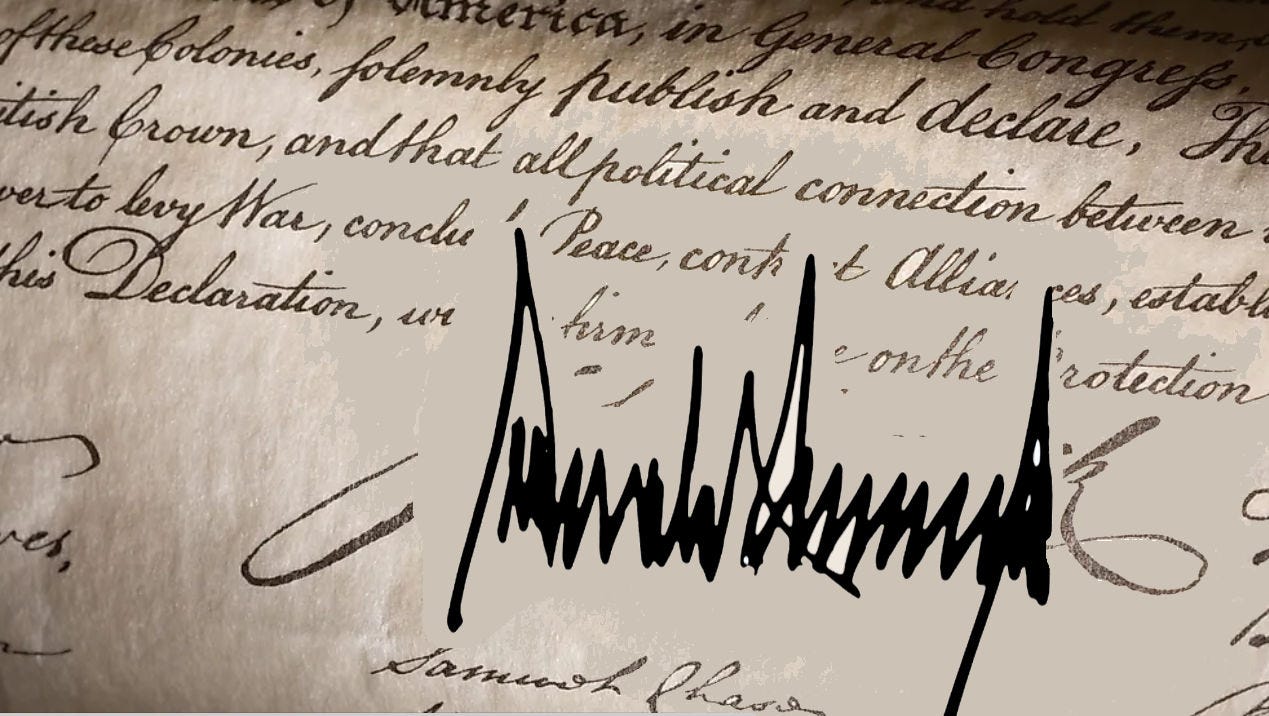 of America, in General Congreſs,
and hold them,
of these Colonies, solemnly publish and declare, Tha
itish Crown, and that all political connection between
wer to levy War, conclu Peace, cont t Allia ces, establ
this Declaration, firm on the rotection
Donald Trump
ver,
Samuel Chase